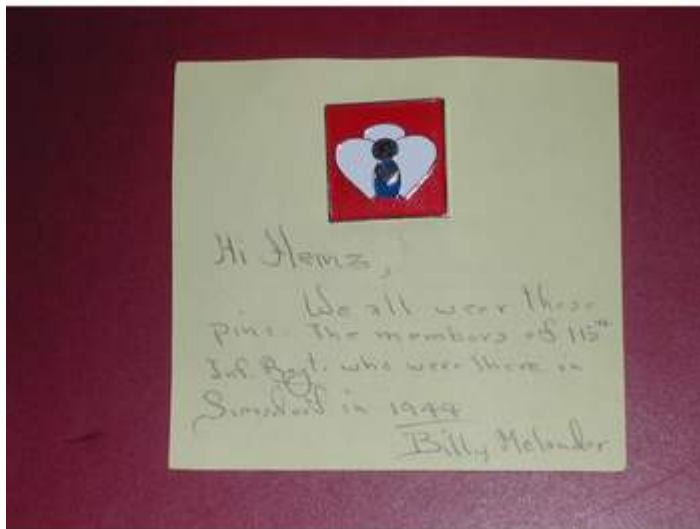 Hi Heinz,
We all wear these
pins. The members of 115th
Inf. Regt. who were there in
in 1944
Billy Melander